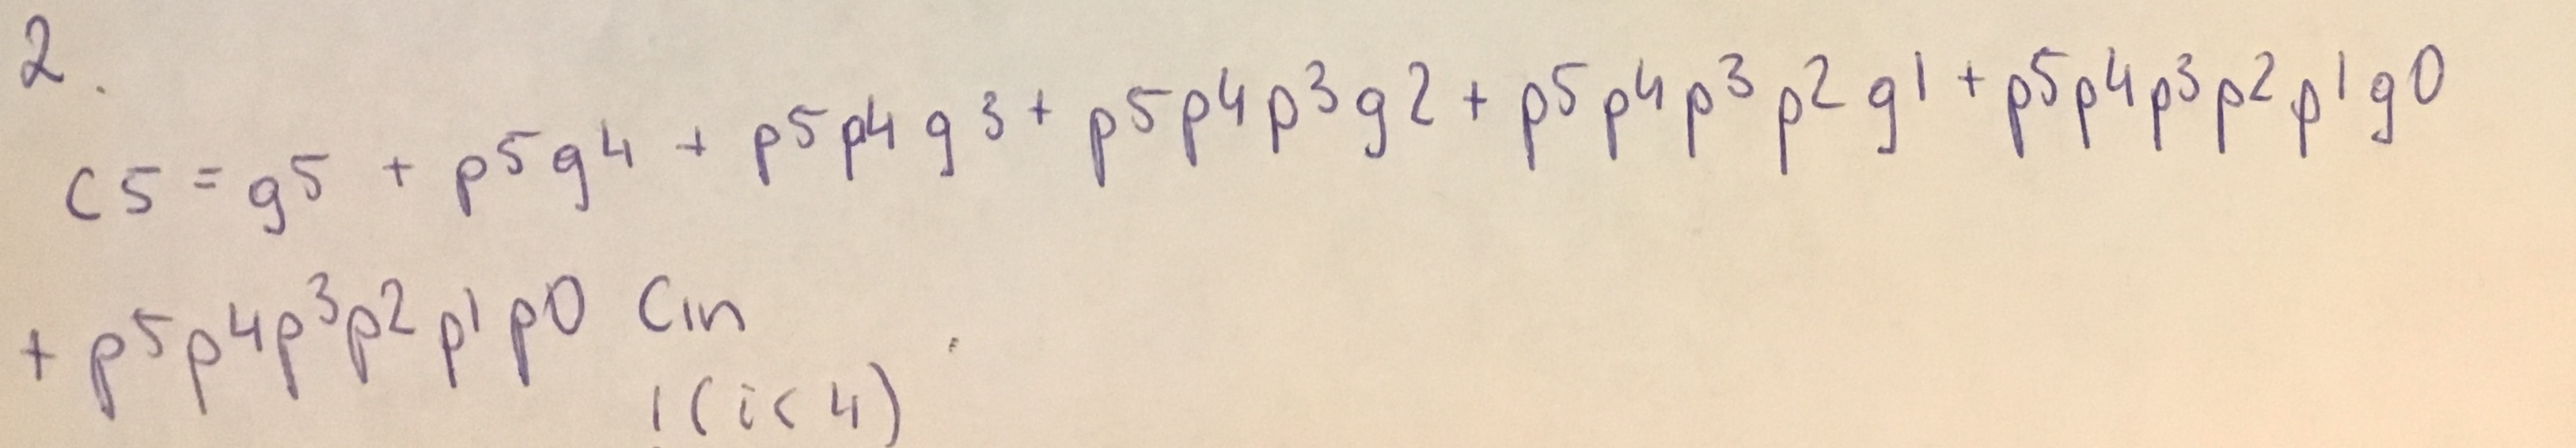 2.
c5 = g5 + p5g4 + p5p4g3 + p5p4p3g2 + p5p4p3p2g1 + p5p4p3p2p1g0
+ p5p4p3p2p1p0 Cin
!(i<4)